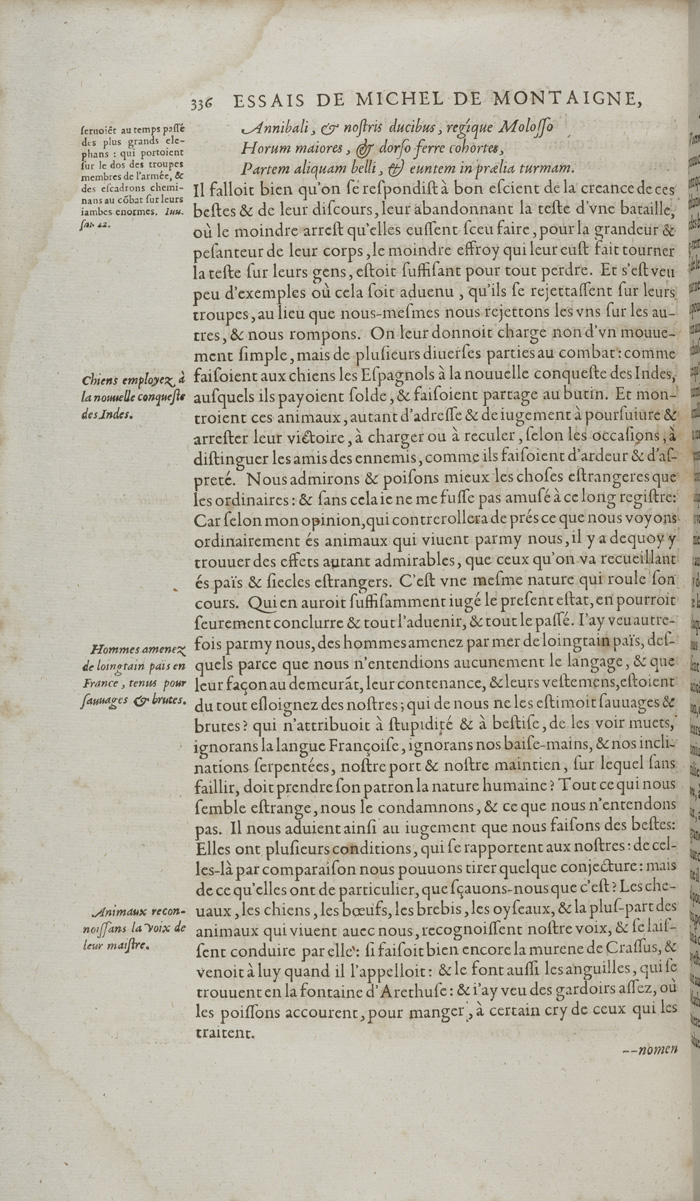 336 ESSAIS DE MICHEL DE MONTAIGNE,
ſeruoiẽt au temps paſſé
des plus grands ele-
phans : qui portoient
ſur le dos des troupes
membres de l'armée, &
des eſcadrons chemi-
nans au cõbat ſur leurs
iambes enormes. Iuu.
ſat. 12.
Annibali, & noſtris ducibus, regique Moloſſo
Horum maiores, & dorſo ferre cohortes,
Partem aliquam belli, & euntem in prælia turmam.
Il falloit bien qu'on ſe reſpondiſt à bon eſcient de la creance de ces
beſtes & de leur diſcours, leur abandonnant la teſte d'vne bataille,
où le moindre arreſt qu'elles euſſent ſceu faire, pour la grandeur &
peſanteur de leur corps, le moindre effroy qui leur euſt fait tourner
la teſte ſur leurs gens, eſtoit ſuffiſant pour tout perdre. Et s'eſt veu
peu d'exemples où cela ſoit aduenu, qu'ils ſe rejettaſſent ſur leurs
troupes, au lieu que nous-meſmes nous rejettons les vns ſur les au-
tres, & nous rompons. On leur donnoit charge non d'vn mouue-
ment ſimple, mais de pluſieurs diuerſes parties au combat: comme
Chiens employez à
la nouuelle conqueſte
des Indes.
faiſoient aux chiens les Eſpagnols à la nouuelle conqueſte des Indes,
auſquels ils payoient ſolde, & faiſoient partage au butin. Et mon-
troient ces animaux, autant d'adreſſe & de iugement à pourſuiure &
arreſter leur victoire, à charger ou à reculer, ſelon les occaſions, à
diſtinguer les amis des ennemis, comme ils faiſoient d'ardeur & d'aſ-
preté. Nous admirons & poiſons mieux les choſes eſtrangeres que
les ordinaires: & ſans cela ie ne me fuſſe pas amuſé à ce long regiſtre:
Car ſelon mon opinion, qui contrerollera de prés ce que nous voyons
ordinairement és animaux qui viuent parmy nous, il y a dequoy y
trouuer des effets autant admirables, que ceux qu'on va recueillant
és païs & ſiecles eſtrangers. C'eſt vne meſme nature qui roule ſon
cours. Qui en auroit ſuffiſamment iugé le preſent eſtat, en pourroit
ſeurement conclurre & tout l'aduenir, & tout le paſſé. I'ay veu autre-
Hommes amenez
de loingtain païs en
France, tenus pour
ſauuages & brutes.
fois parmy nous, des hommes amenez par mer de loingtain païs, deſ-
quels parce que nous n'entendions aucunement le langage, & que
leur façon au demeurãt, leur contenance, & leurs veſtemens, eſtoient
du tout eſloignez des noſtres; qui de nous ne les eſtimoit ſauuages &
brutes? qui n'attribuoit à ſtupidité & à beſtiſe, de les voir muets,
ignorans la langue Françoiſe, ignorans nos baiſe-mains, & nos incli-
nations ſerpentées, noſtre port & noſtre maintien, ſur lequel ſans
faillir, doit prendre ſon patron la nature humaine? Tout ce qui nous
ſemble eſtrange, nous le condamnons, & ce que nous n'entendons
pas. Il nous aduient ainſi au iugement que nous faiſons des beſtes:
Elles ont pluſieurs conditions, qui ſe rapportent aux noſtres: de cel-
les-là par comparaiſon nous pouuons tirer quelque conjecture: mais
de ce qu'elles ont de particulier, que ſçauons-nous que c'eſt? Les che-
Animaux recon-
noiſſans la voix de
leur maiſtre.
uaux, les chiens, les bœufs, les brebis, les oyſeaux, & la pluſ-part des
animaux qui viuent auec nous, recognoiſſent noſtre voix, & ſe laiſ-
ſent conduire par elle: ſi faiſoit bien encore la murene de Craſſus, &
venoit à luy quand il l'appelloit: & le font auſſi les anguilles, qui ſe
trouuent en la fontaine d'Arethuſe: & i'ay veu des gardoirs aſſez, où
les poiſſons accourent, pour manger, à certain cry de ceux qui les
traitent.
--nomen